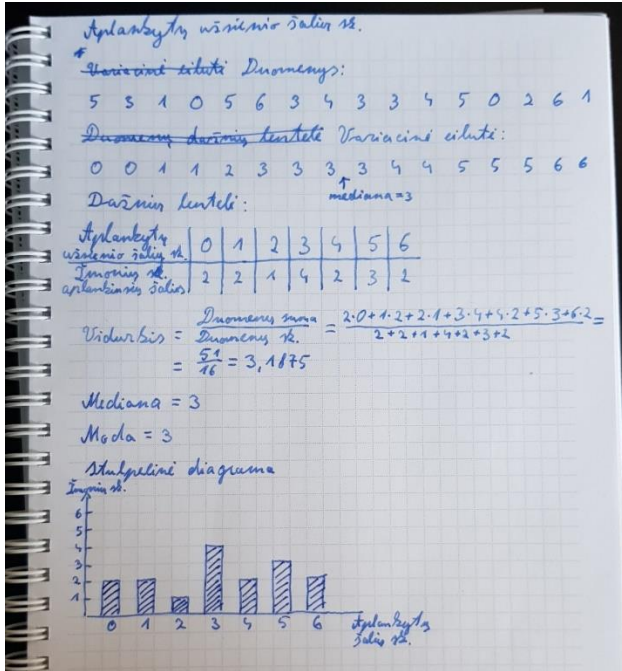 Aplankytų užsienio šalių sk.
Variacinė eilutė Duomenys:
5 3 1 0 5 6 3 4 3 3 4 5 0 2 6 1
Duomenų dažnių lentelė Variacinė eilutė:
0 0 1 1 2 3 3 3 3 4 4 5 5 5 6 6
↑
mediana=3
Dažnių lentelė:
Aplankytų užsienio šalių sk. 0 1 2 3 4 5 6
Žmonių sk. aplankiusių šalis 2 2 1 4 2 3 2
Vidurkis = Duomenų suma / Duomenų sk. = 2·0+1·2+2·1+3·4+4·2+5·3+6·2 / 2+2+1+4+2+3+2 =
= 51/16 = 3,1875
Mediana = 3
Moda = 3
Stulpelinė diagrama
Žmonių sk.
6
5
4
3
2
1
0 1 2 3 4 5 6
Aplankytų
šalių sk.